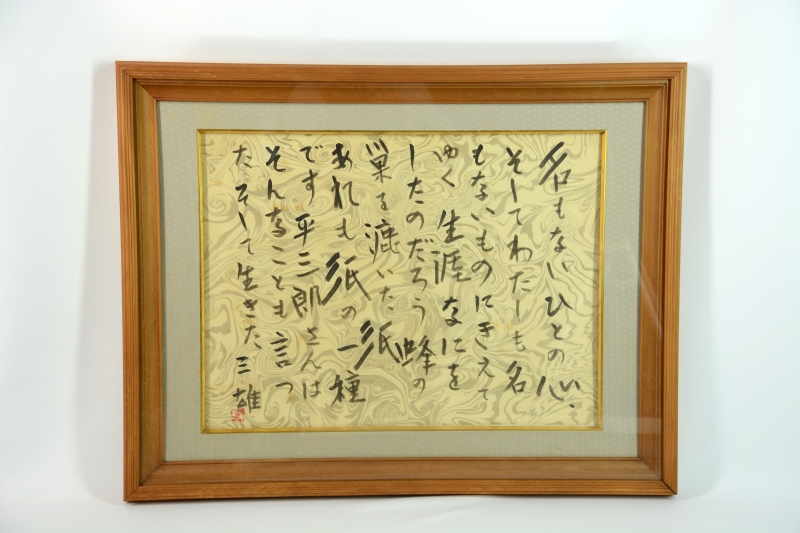 名もないひとの心、
そしてわたしも名
もないものにきえて
ゆく生涯なにを
したのだろう蜂の
巣を漉いた紙
あれも紙の一種
です平三郎さんは
そんなことも言っ
たそして生きた三雄